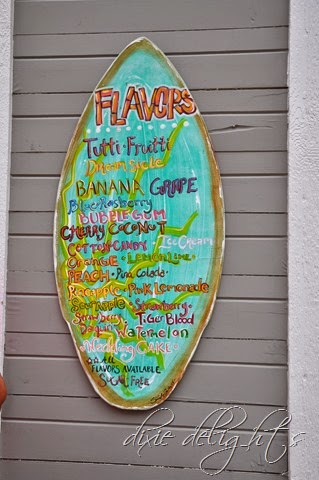 FLAVORS
Tutti Frutti
Dreamsicle
BANANA GRAPE
Blue Rasberry
BUBBLEGUM
CHERRY COCONUT
COTTON CANDY ICE CREAM
ORANGE LEMON LIME
PEACH Pina Colada
Pineapple PINK LEMONADE
Strawberry
Strawberry TIGER BLOOD
Daiquiri Watermelon
Wedding CAKE
ALL
FLAVORS AVAILABLE
SUGAR FREE
dixie delights